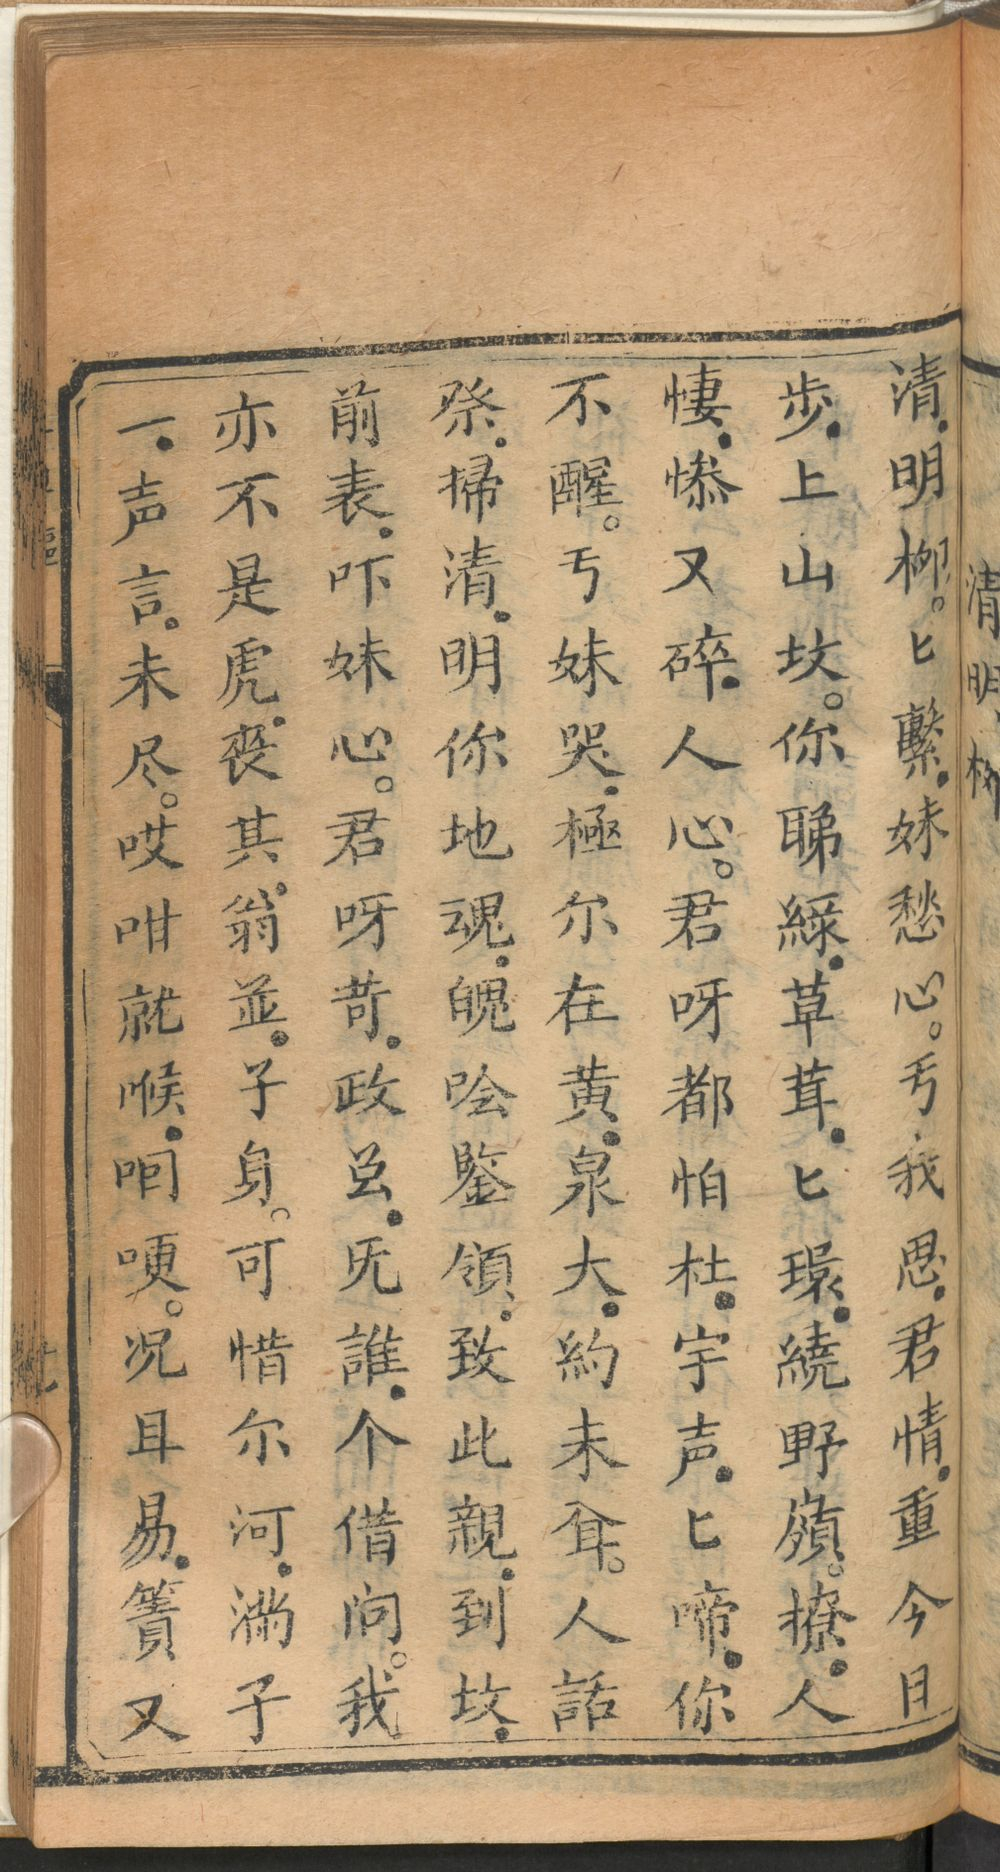 清明柳
清明柳。匕繫妹愁心。丐我思君情重今日
步上山坟。你睇綠草茸匕環繞野嶺。撩人
悽慘又碎人心。君呀都怕杜宇声匕啼你
不醒。丐妹哭極尔在黄泉大約未耸。人話
祭掃清明你地魂魄唅鑒領致此親到坟
前表吓妹心。君呀苛政㒷旡誰个借问。我
亦不是虎丧其翁並子身。可惜尔河满子
一声言未尽。哎咁就喉咽哽。况且易簀又